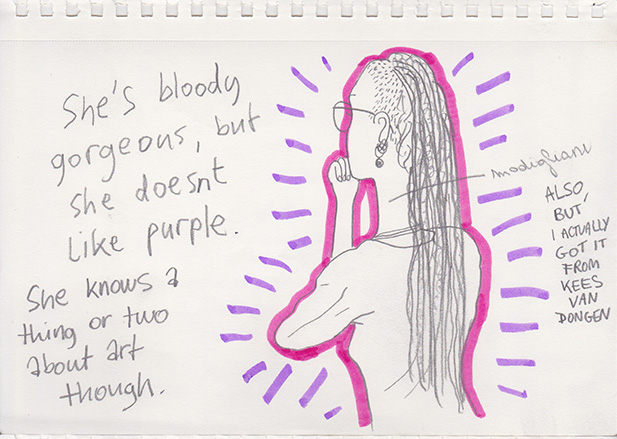 She's bloody
gorgeous, but
she doesnt
like purple.
She knows a
thing or two
about art
though.
modigliani
ALSO,
BUT
I ACTUALLY
GOT IT
FROM
KEES
VAN
DONGEN